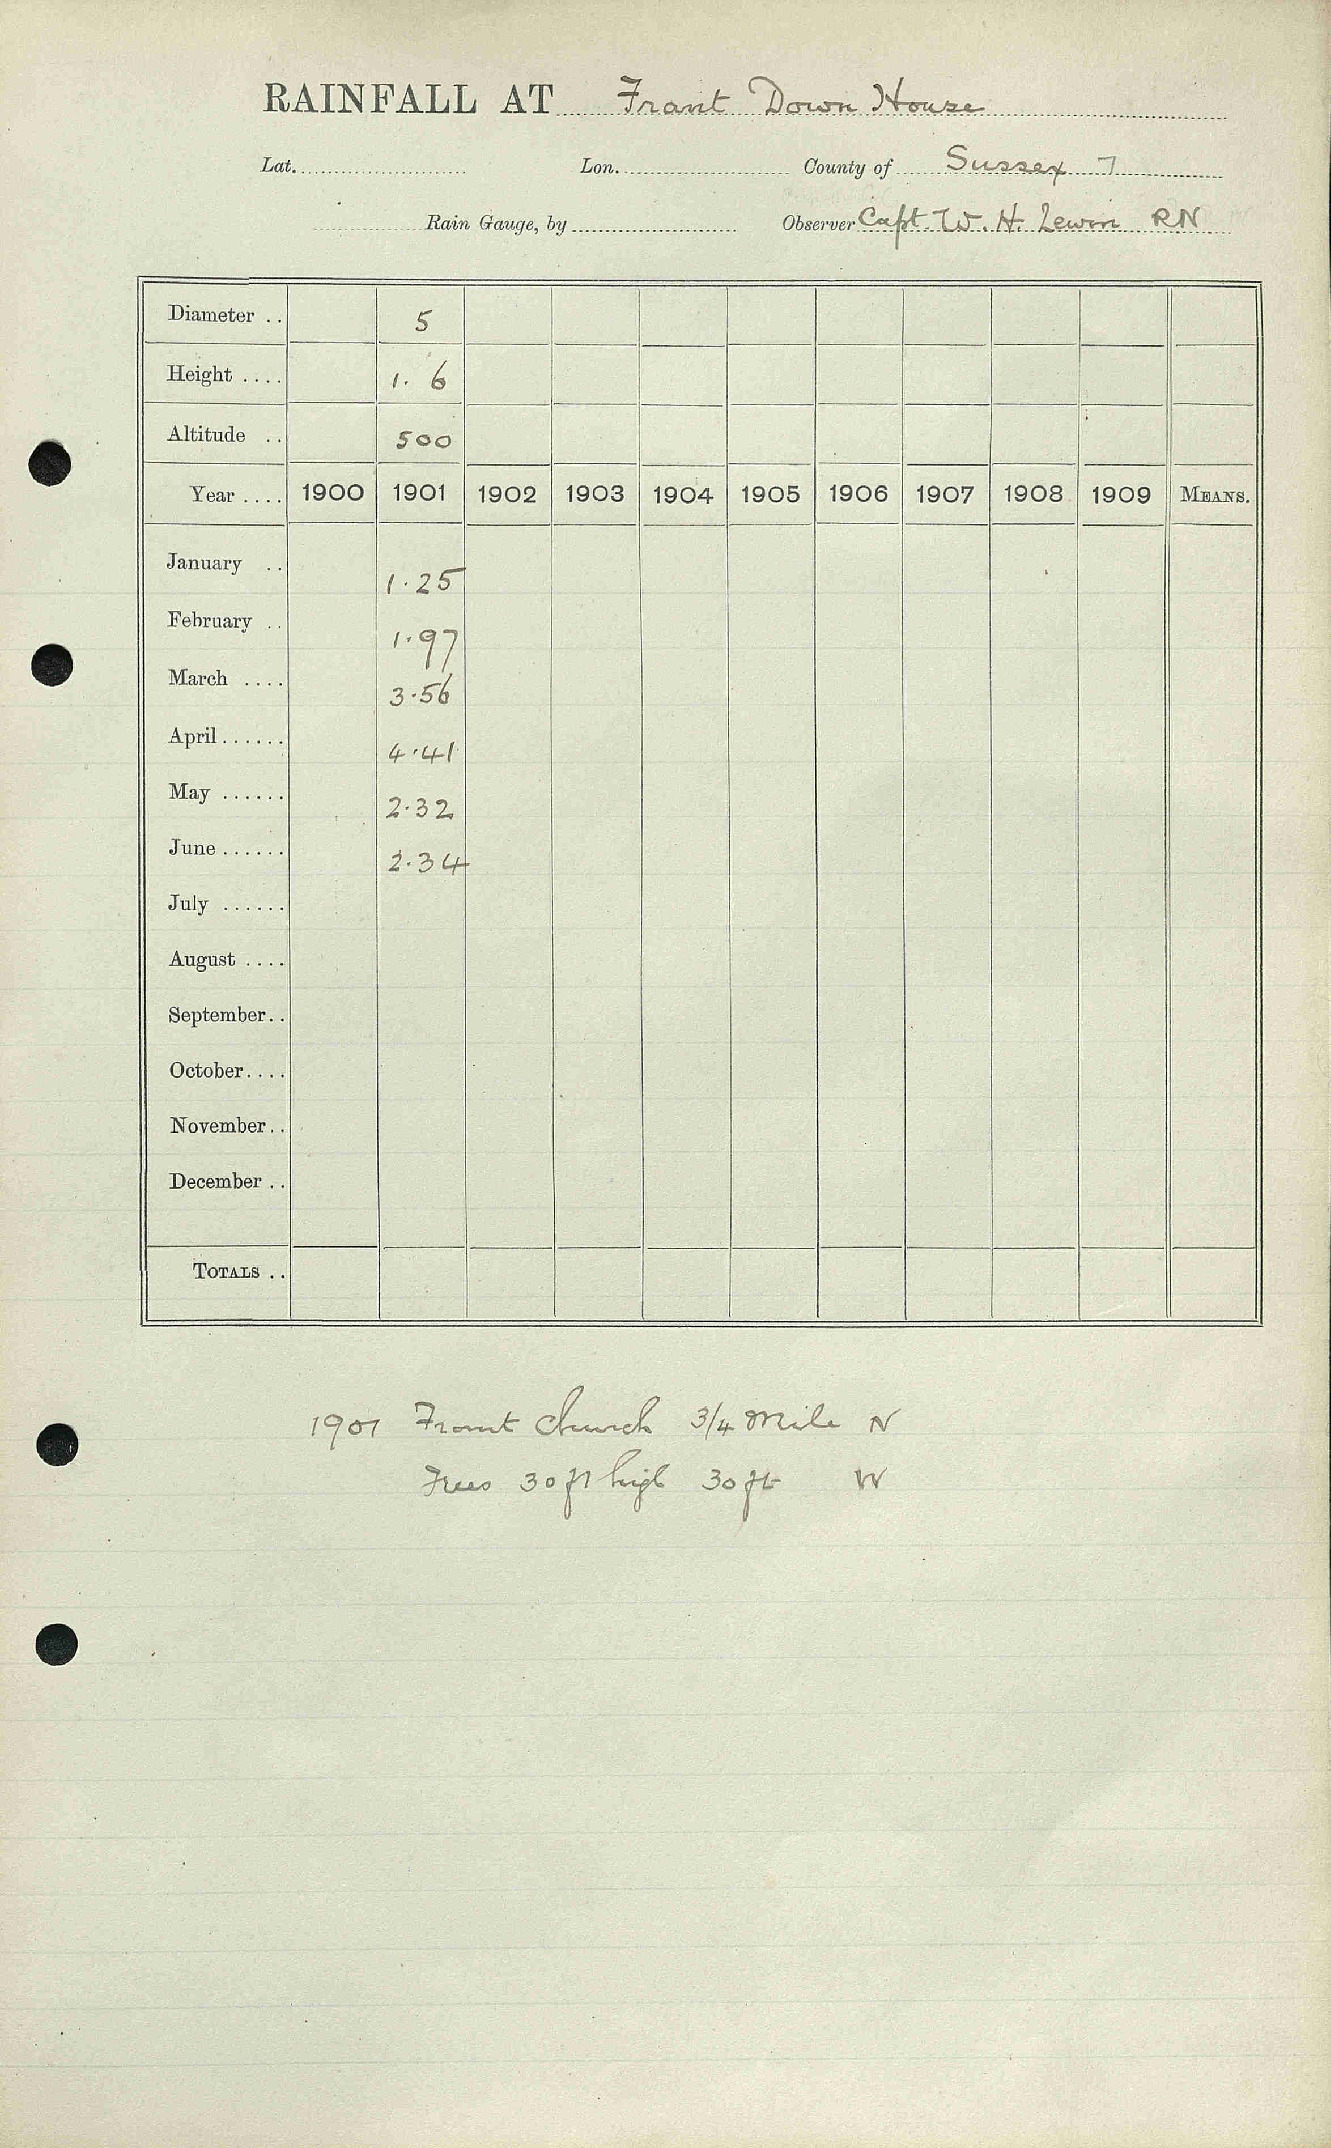 RAINFALL AT Frant Down House
Lat. Lon. County of Sussex 7
Rain Gauge, by Observer Capt. W. H. Lewin RN
Diameter .. 5
Height .... 1. 6
Altitude .. 500
Year .... 1900 1901 1902 1903 1904 1905 1906 1907 1908 1909 MEANS.
January .. 1.25
February .. 1.97
March .... 3.56
April ...... 4.41
May ...... 2.32
June ...... 2.34
July ......
August ....
September..
October....
November..
December ..
TOTALS ..
1901 Frant Church 3/4 Mile N
Trees 30 ft high 30 ft W